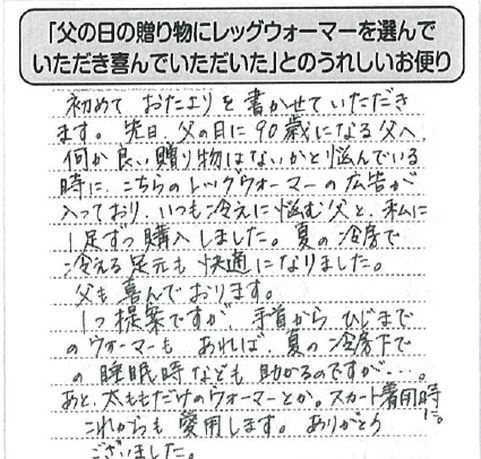 「父の日の贈り物にレッグウォーマーを選んで
いただき喜んでいただいた」とのうれしいお便り
初めて おたよりを書かせていただき
ます。先日、父の日に90歳になる父へ、
何か良い贈り物はないかと悩んでいる
時に、こちらのレッグウォーマーの広告が
入っており、いつも冷えに悩む父と、私に
1足ずつ購入しました。夏の冷房で
冷える足元も快適になりました。
父も喜んでおります。
1つ提案ですが、手首から ひじまで
のウォーマーも あれば、夏の冷房下で
の睡眠時なども助かるのですが…。
あと、太ももだけのウォーマーとか。スカート着用時に。
これからも愛用します。ありがとう
ございました。